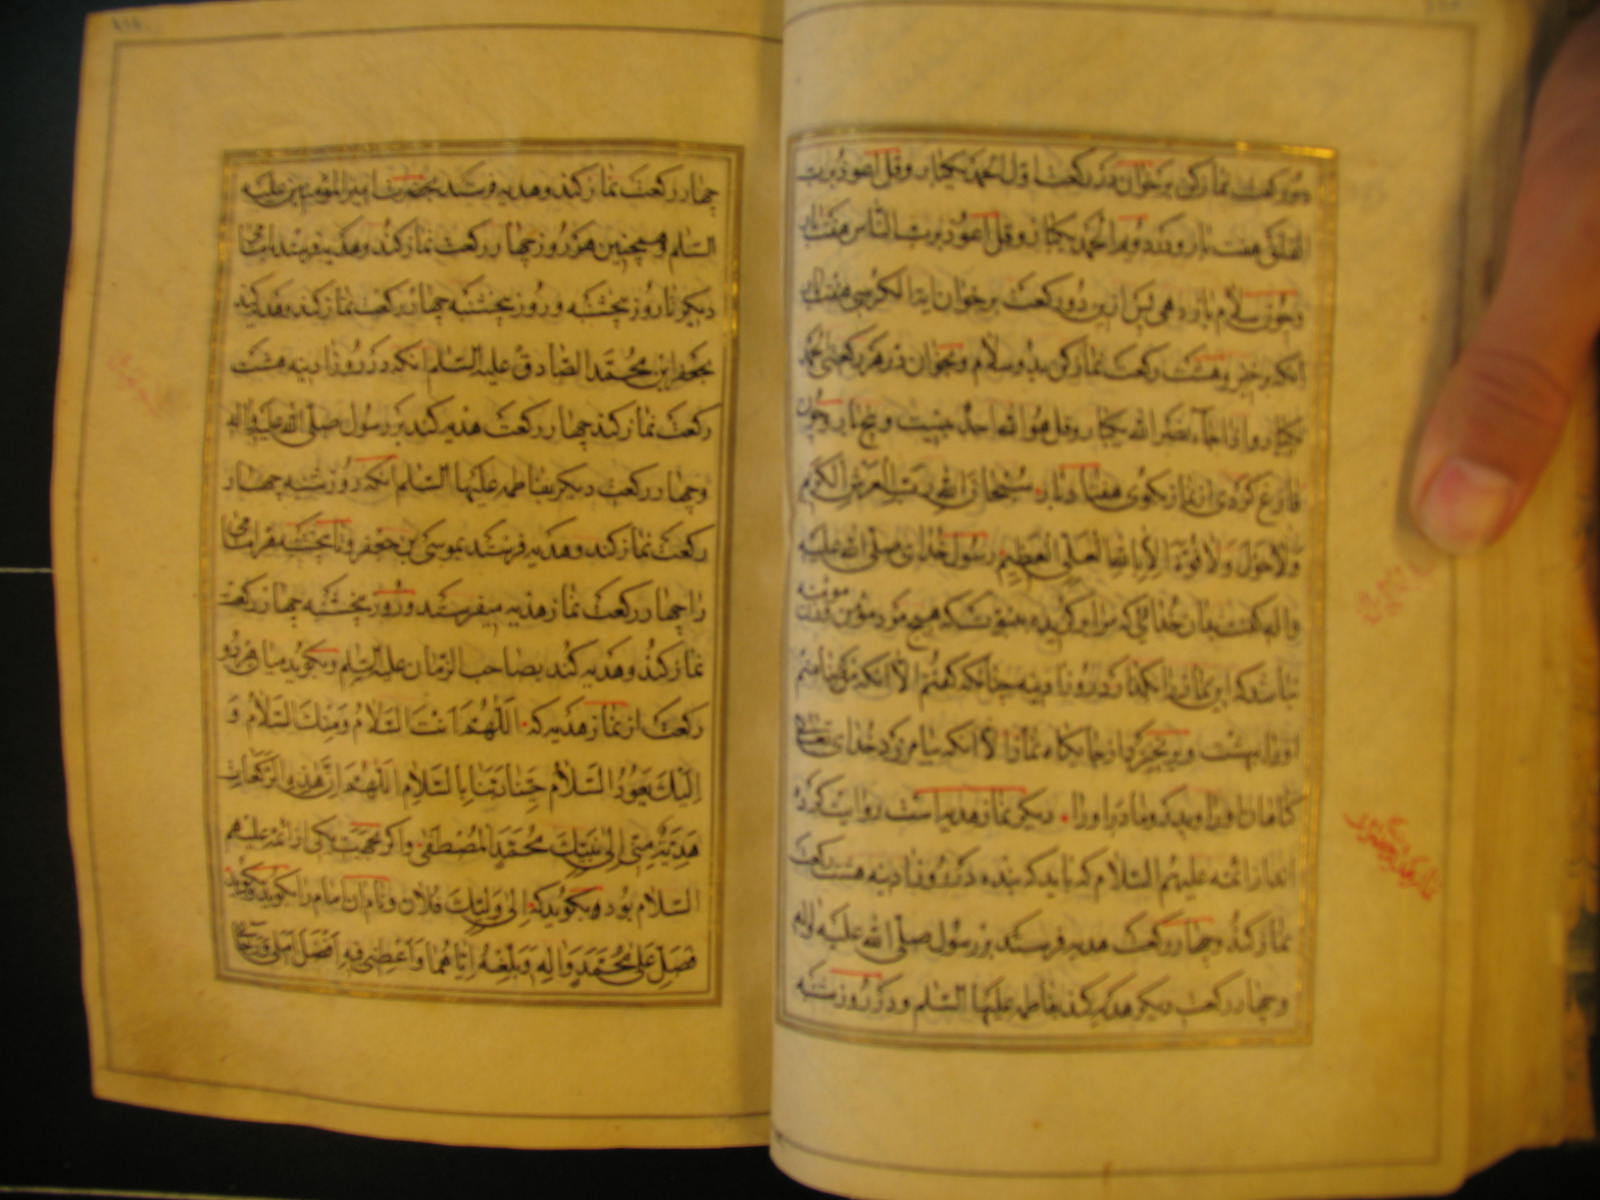 دو رکعت نماز کن برخوان در رکعت اول الحمد یکبار و قل اعوذ برب
الفلق هفت بار و در دوم الحمد یکبار و قل اعوذ برب الناس هفت بار
و چون سلام باز دهی پس ازین دو رکعت برخوان ایة الکرسی هفت بار
انکه برخیز و هشت رکعت نماز کن بدو سلام و بخوان در هر رکعتی الحمد
یکبار و اذا جاء نصر الله یکبار و قل هو الله احد بیست و پنج بار و چون
فارغ کردی از نماز بکوی هفتاد بار سبحان الله رب العرش الکریم
ولا حول ولا قوة الا بالله العلی العظیم رسول خدای صلی الله علیه
واله کفت بدان خدائی که مرا برکزیده که هیچ مرد مؤمن و زن مومنه
نباشد که این نماز را بکذارد در روز ادینه چنانکه کفتم الا انکه من ضامنم
او را بهشت و بر نخیزد از جایکاه نماز الا انکه بیامرزد خدای تعالی
کناهان او را و پدر و مادر او را دیکر نماز هدیه است روایت کرده
اند از ائمه علیهم السلام که باید که بنده در روز ادینه هشت رکعت
نماز کند چهار رکعت هدیه فرستد بر رسول صلی الله علیه واله
و چهار رکعت دیکر هدیه کند بفاطمه علیها السلم و در روز شنبه
چهار رکعت نماز کند و هدیه فرستد بحضرت امیر المؤمنین علیه
السلم و همچنین هر روز چهار رکعت نماز کند و هدیه فرستد بامامی
دیکر تا روز پنجشنبه و روز پنجشنبه چهار رکعت نماز کند و هدیه کند
بجعفر ابن محمد الصادق علیه السلم انکه در روز ادینه هشت
رکعت نماز کند چهار رکعت هدیه کند بر رسول صلی الله علیه واله
و چهار رکعت دیکر بفاطمه علیها السلم انکه روز شنبه چهار
رکعت نماز کند و هدیه فرستد بموسی بن جعفر و تا پنجشنبه هر امامی
را چهار رکعت نماز هدیه میفرستد و روز پنجشنبه چهار رکعت
نماز کند و هدیه کند بصاحب الزمان علیه السلم و بکوید میان هر دو
رکعت از نماز هدیه که اللهم انت السلام ومنك السلام و
الیك یعود السلام حینا ربنا بالسلام اللهم ان هذه الرکعات
هدیة منی الی نبیك محمد المصطفی و اکر بجهت یکی از ائمه علیهم
السلام بود بکوید که الی ولیك فلان و نام ان امام را بکوید و بکوید
فصل علی محمد واله وبلغه ایاهما واعطنی فیه افضل املی ورجائی